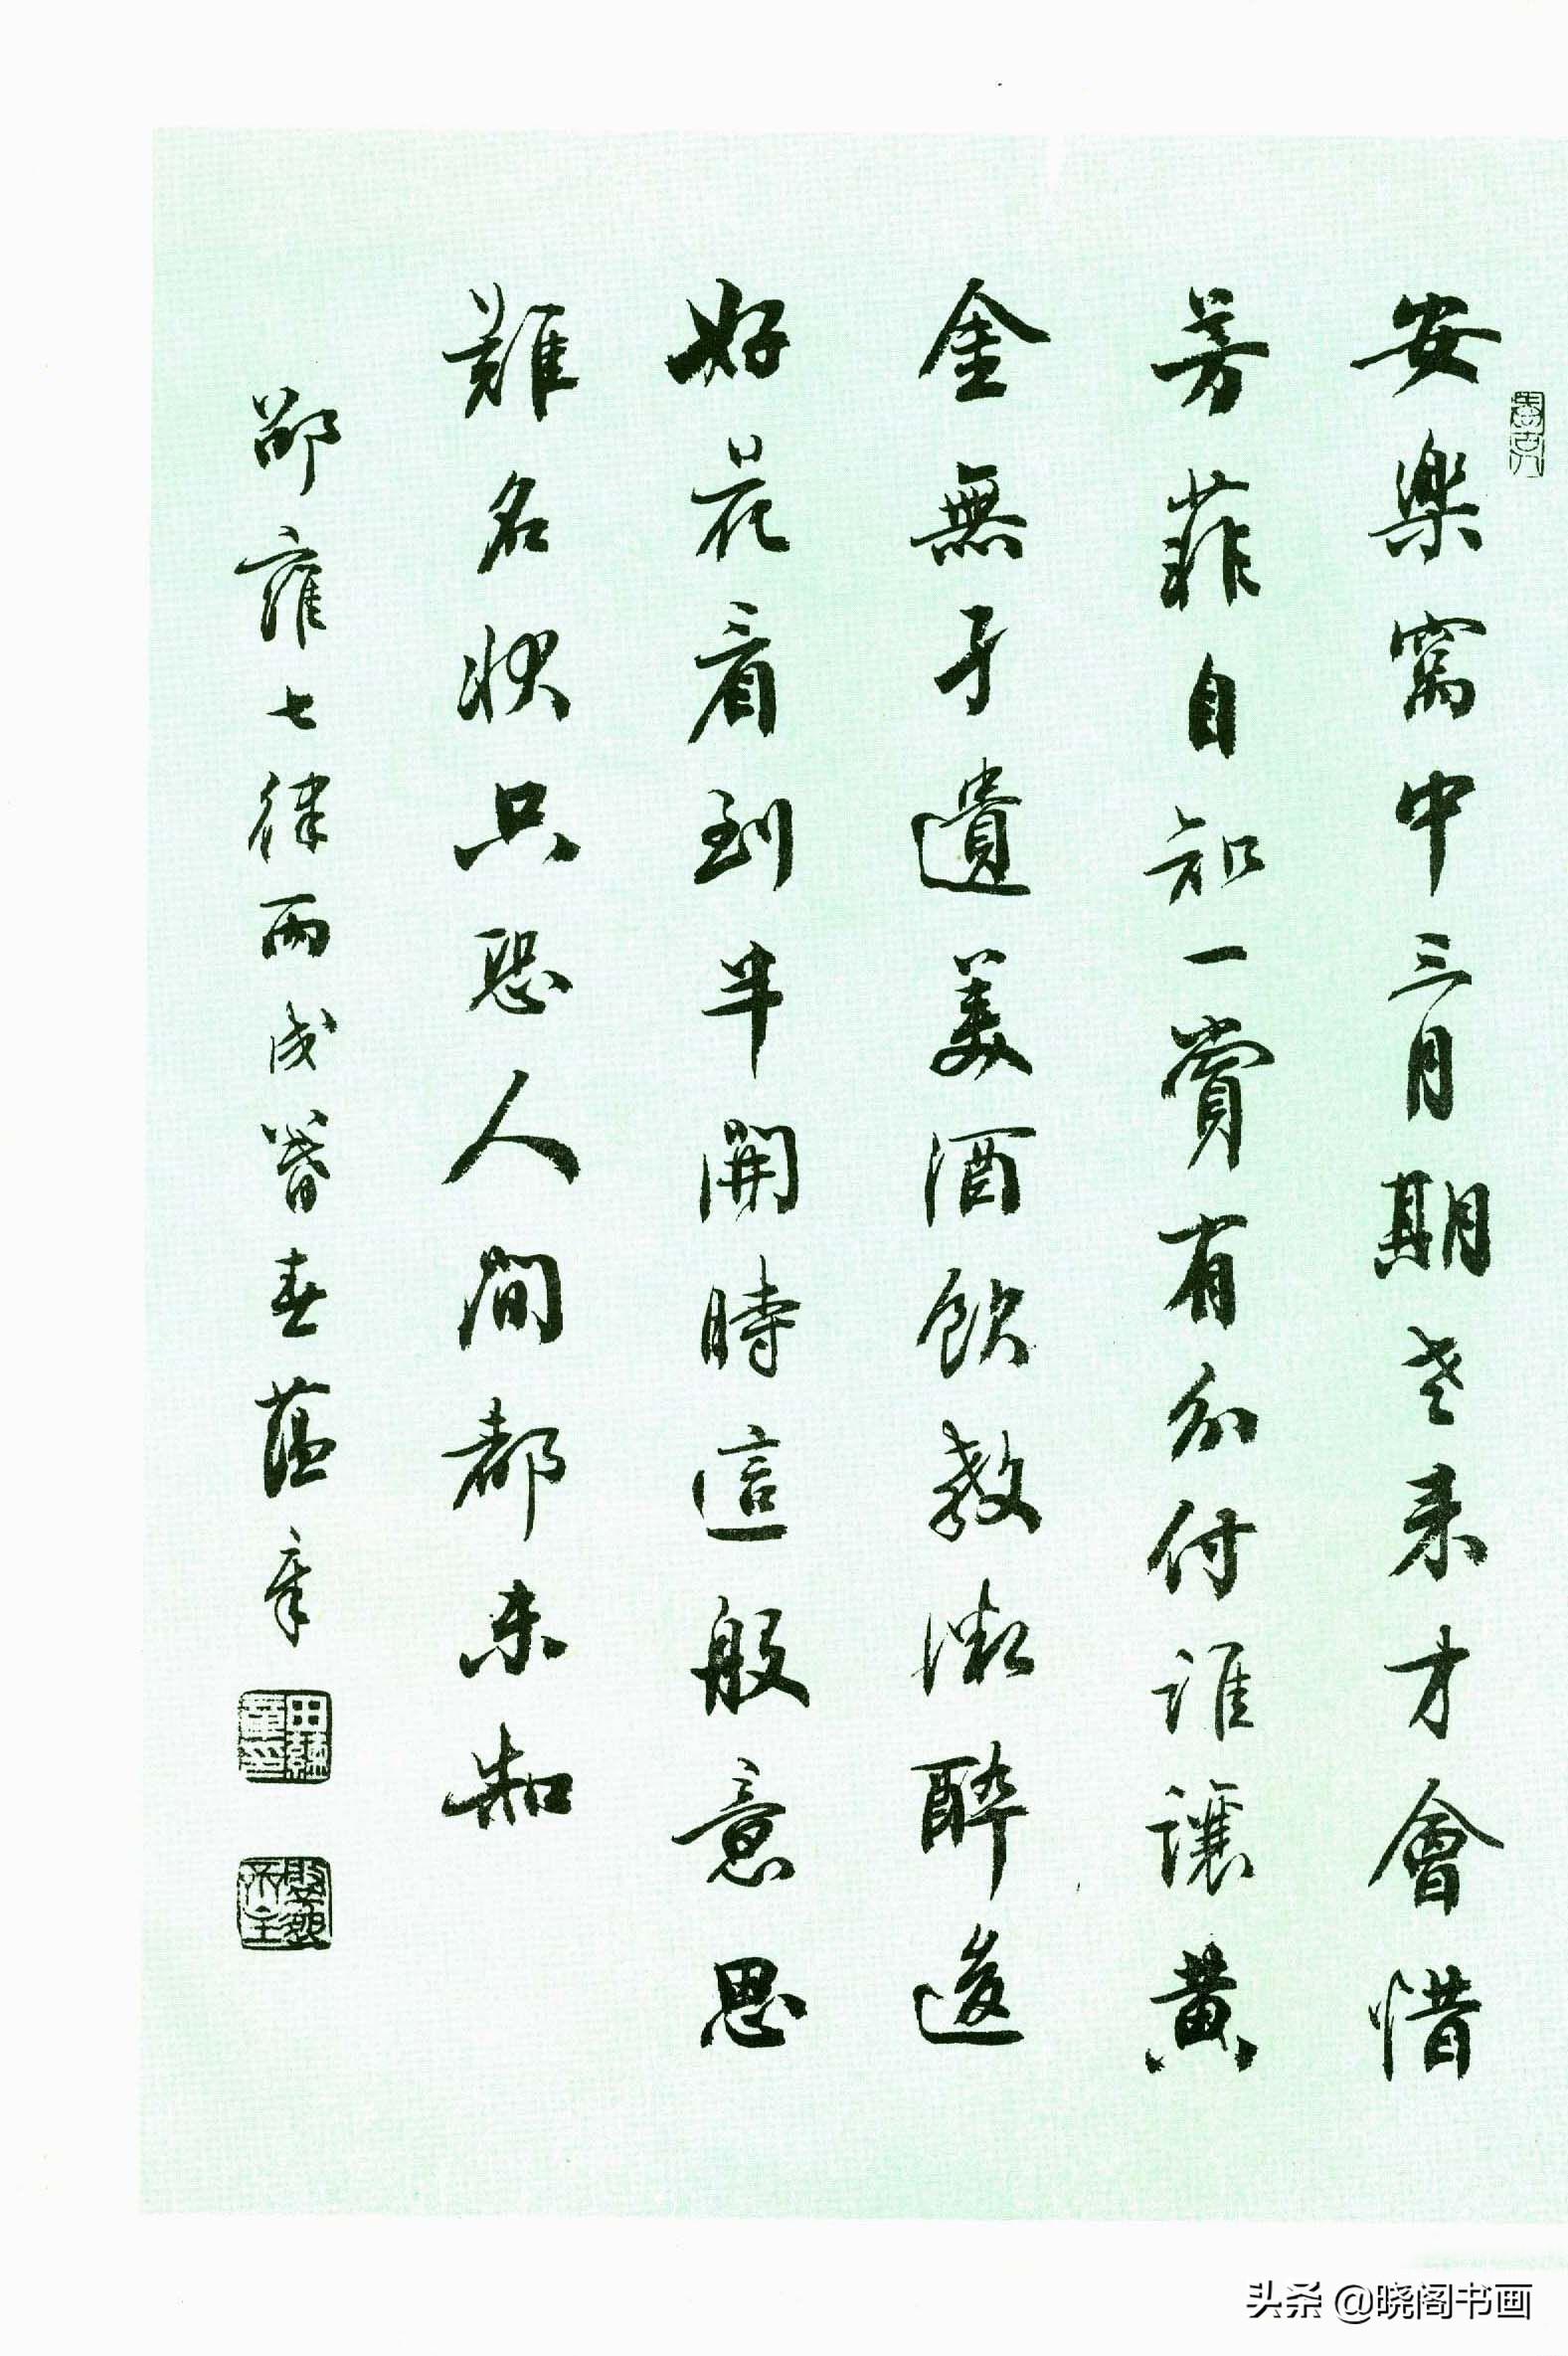 安樂窩中三月期老来才會惜
芳菲自知一賞有分付誰讓黄
金無孑遺美酒飲教微醉後
好花看到半開時這般意思
難名狀只恐人間都未知
邵雍七律丙戌暮春蘊章
田蘊章印
头条 @晓阁书画